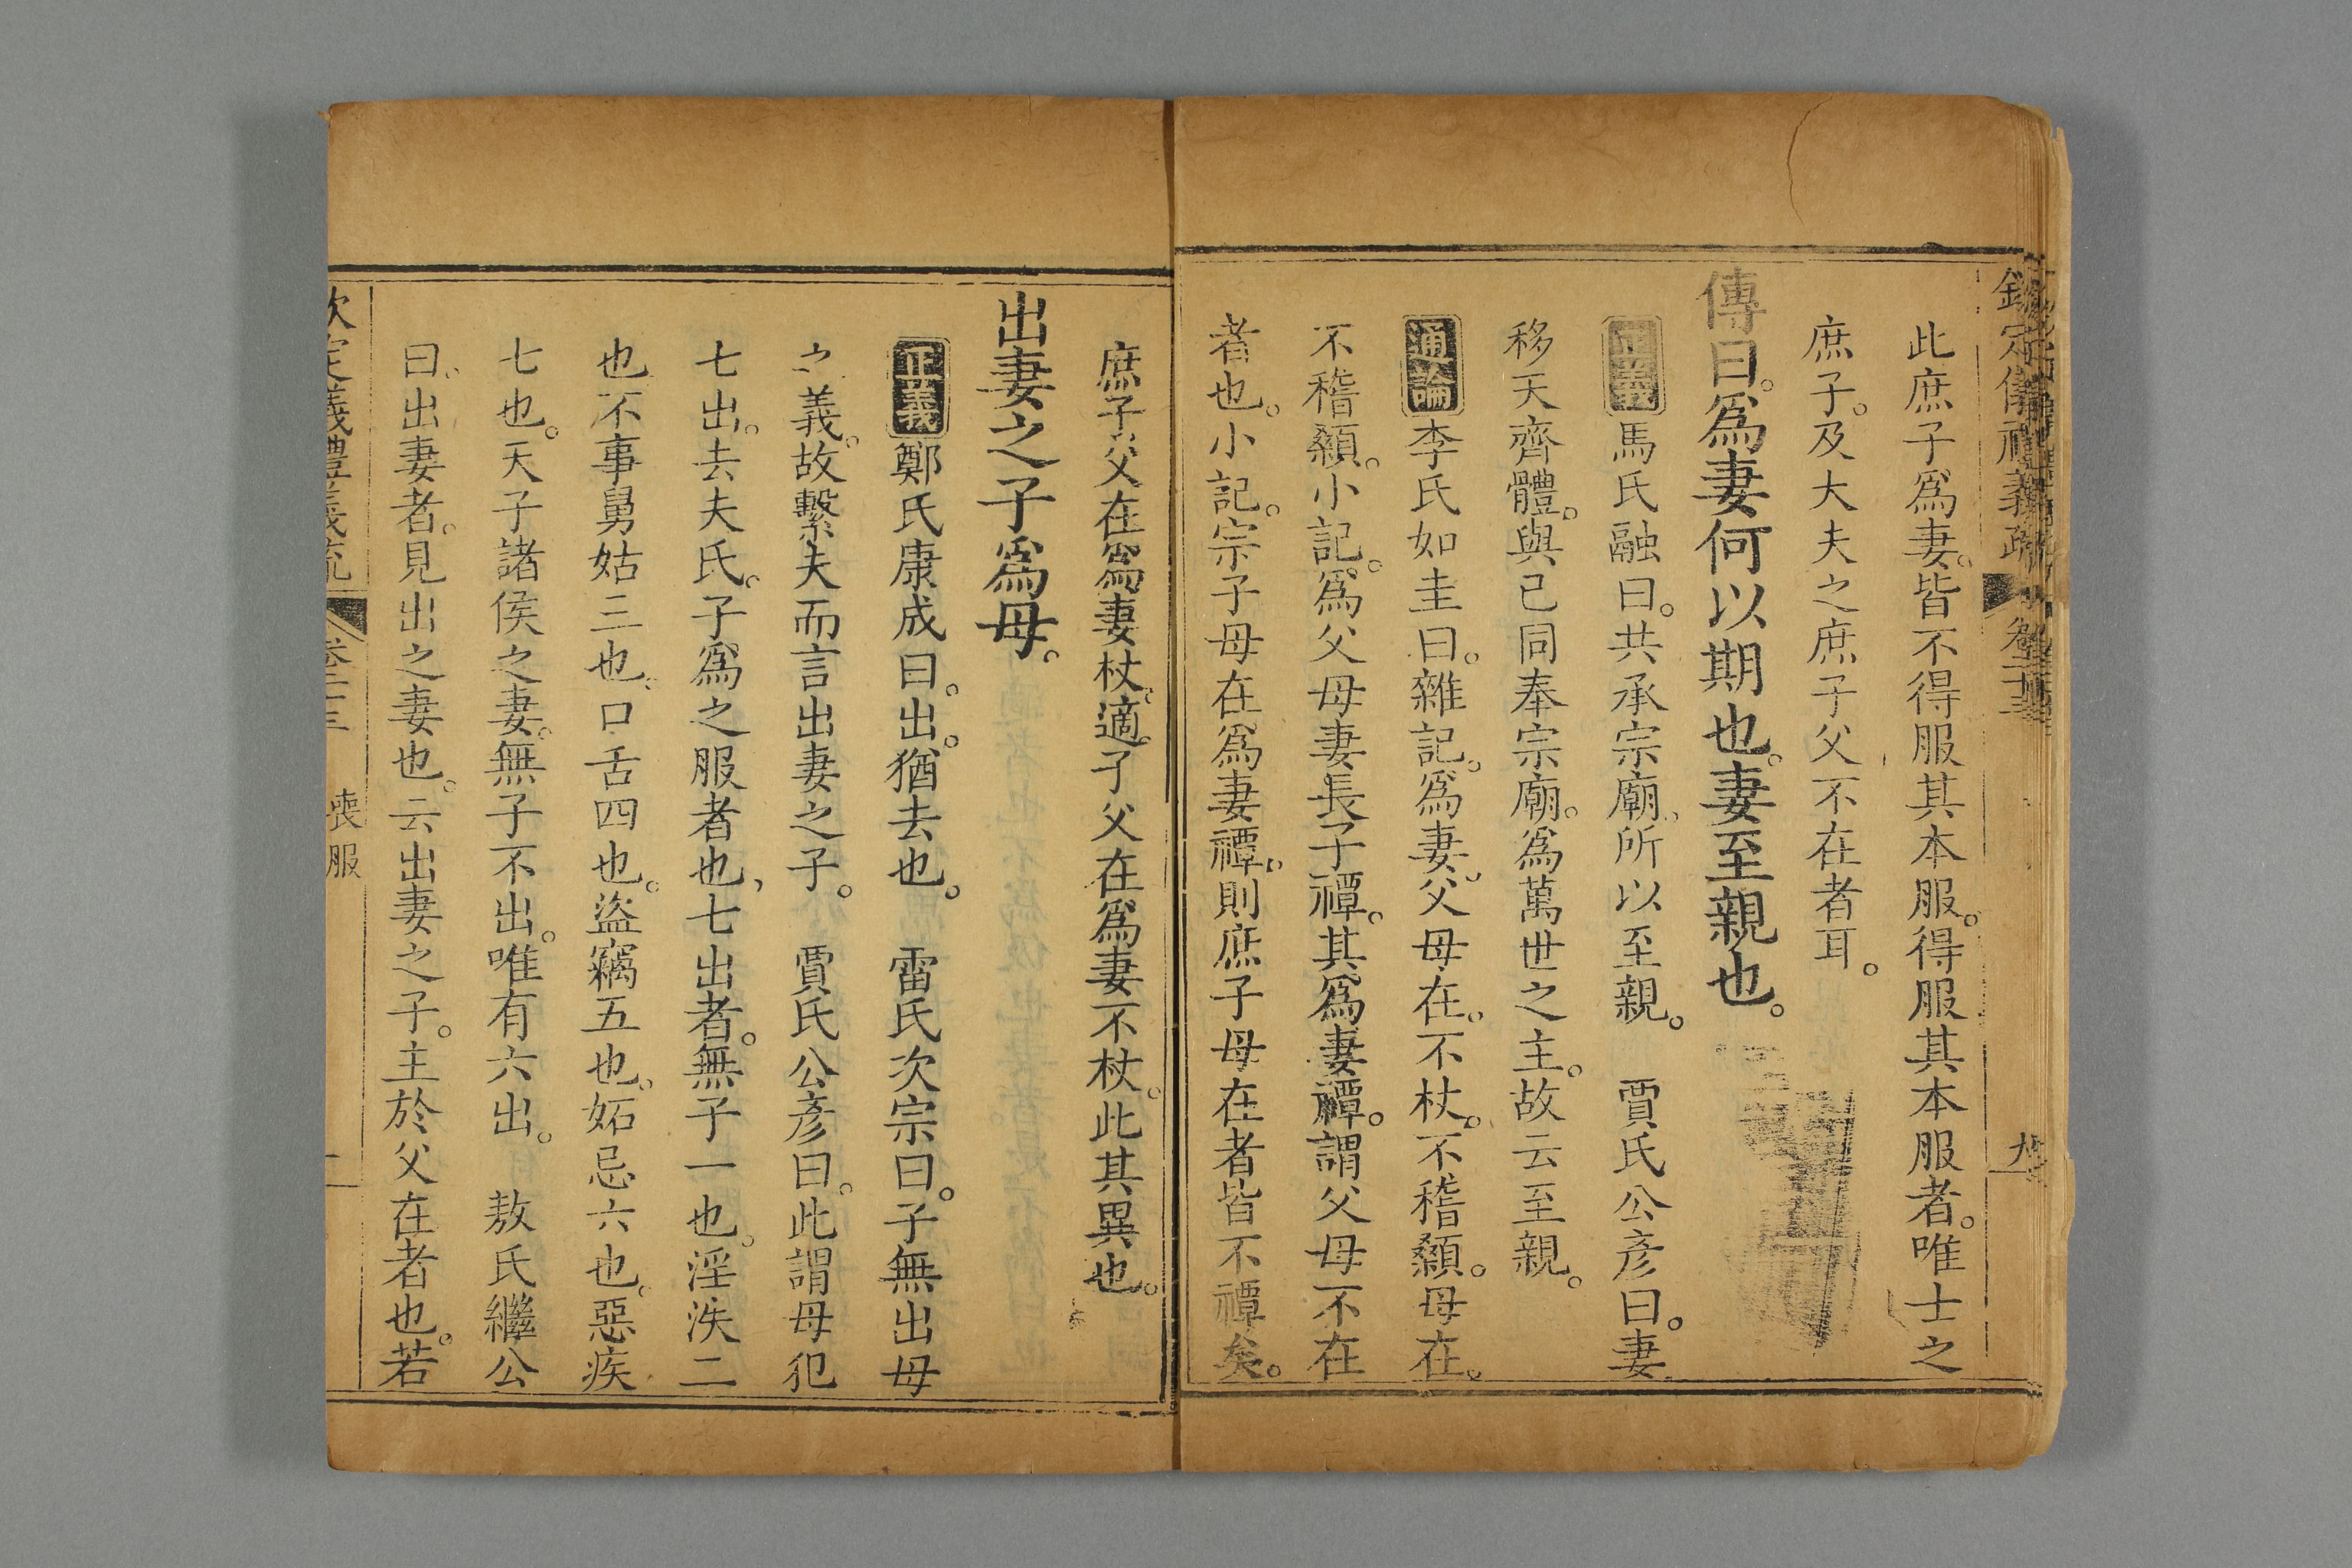 欽定儀禮義疏 卷二十三 九
此庶子爲妻。皆不得服其本服。得服其本服者。唯士之
庶子。及大夫之庶子父不在者耳。
傳曰。爲妻何以期也。妻至親也。
正義馬氏融曰。共承宗廟。所以至親。 賈氏公彥曰。妻
移天齊體。與已同奉宗廟。爲萬世之主。故云至親。
通論李氏如圭曰。雜記。爲妻。父母在。不杖。不稽顙。母在。
不稽顙。小記。爲父母妻長子禫。其爲妻禫。謂父母不在
者也。小記。宗子母在爲妻禫。則庶子母在者皆不禫矣。
庶子父在爲妻杖。適子父在爲妻不杖。此其異也。
出妻之子爲母。
正義鄭氏康成曰。出。猶去也。 雷氏次宗曰。子無出母
之義。故繫夫而言出妻之子。 賈氏公彥曰。此謂母犯
七出。去夫氏。子爲之服者也。七出者。無子一也。淫泆二
也。不事舅姑三也。口舌四也。盜竊五也。妬忌六也。惡疾
七也。天子諸侯之妻。無子不出。唯有六出。 敖氏繼公
曰。出妻者。見出之妻也。云出妻之子。主於父在者也。若
欽定儀禮義疏 卷二十三 喪服